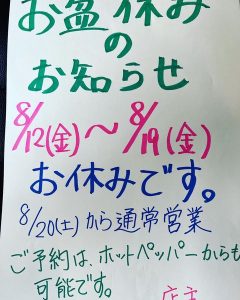 お盆休み
の
お知らせ
8/12(金)〜8/19(金)
お休みです。
8/20(土)から通常営業
ご予約は、ホットペッパーからも
可能です。
店主